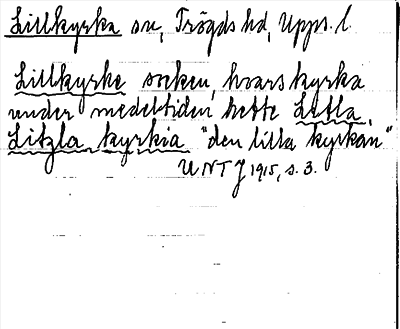 Lillkyrka sn, Trögds hd, Upps. l.
Lillkyrke socken, hvars kyrka
under medeltiden hette Letla,
Litzla kyrkia "den lilla kyrkan"
UNTJ 1915, s. 3.